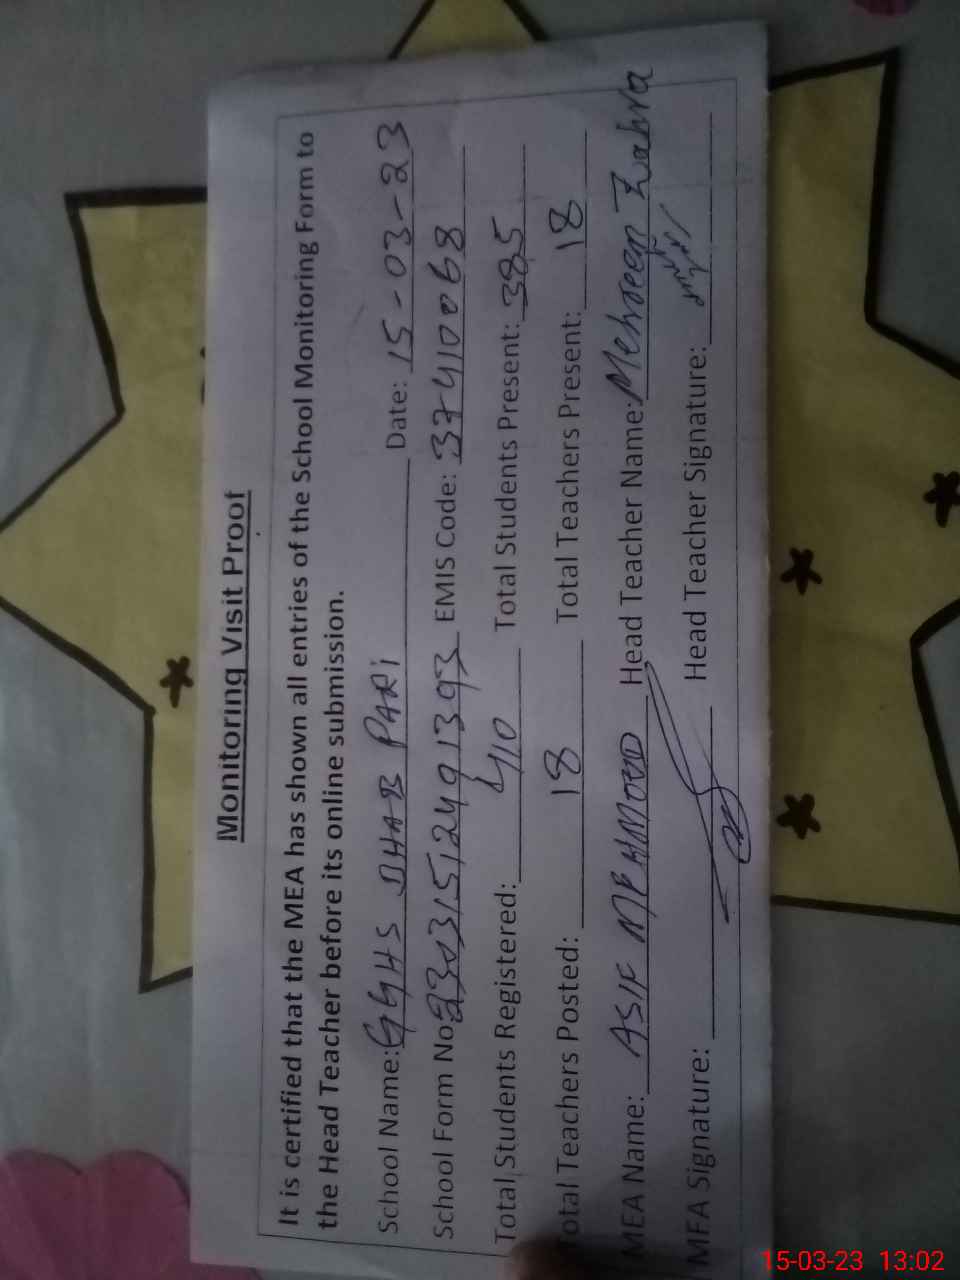 Monitoring Visit Proof
It is certified that the MEA has shown all entries of the School Monitoring Form to
the Head Teacher before its online submission.
School Name: GGHS DHAB PARI Date: 15-03-23
School Form No 23031512491393 EMIS Code: 37410068
Total Students Registered: 410 Total Students Present: 385
Total Teachers Posted: 18 Total Teachers Present: 18
MEA Name: ASIF MEHMOOD Head Teacher Name: Mehreen Zahra
MEA Signature: Head Teacher Signature:
15-03-23 13:02